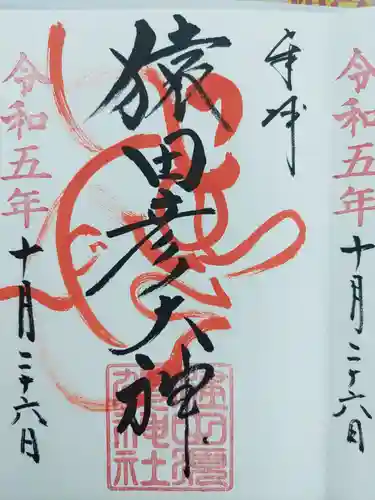 令和五年
奉拝
猿田彦大神
令和五年
十月二十六日
十月二十六日